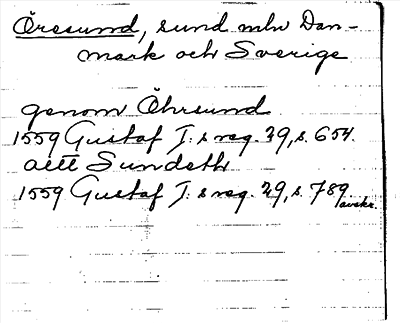 Öresund, sund mln Dan-
mark och Sverige
genom Öhrsund
1559 Gustaf I:s reg. 29, s. 654.
aett Sundeth
1559 Gustaf I:s reg. 29, s. 789
avskr.